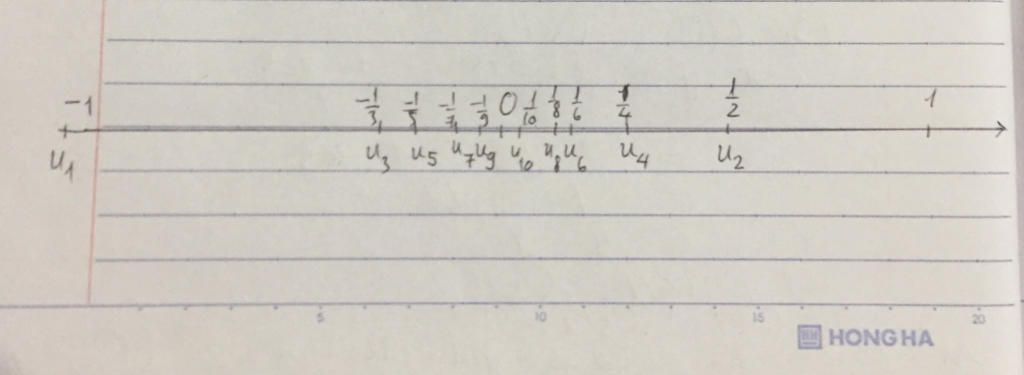 -1 -1/3 -1/5 -1/7 -1/9 0 1/10 1/8 1/6 1/4 1/2 1
u₁ u₃ u₅ u₇ u₉ u₁₀ u₈ u₆ u₄ u₂
5 10 15 20
HH HONG HA